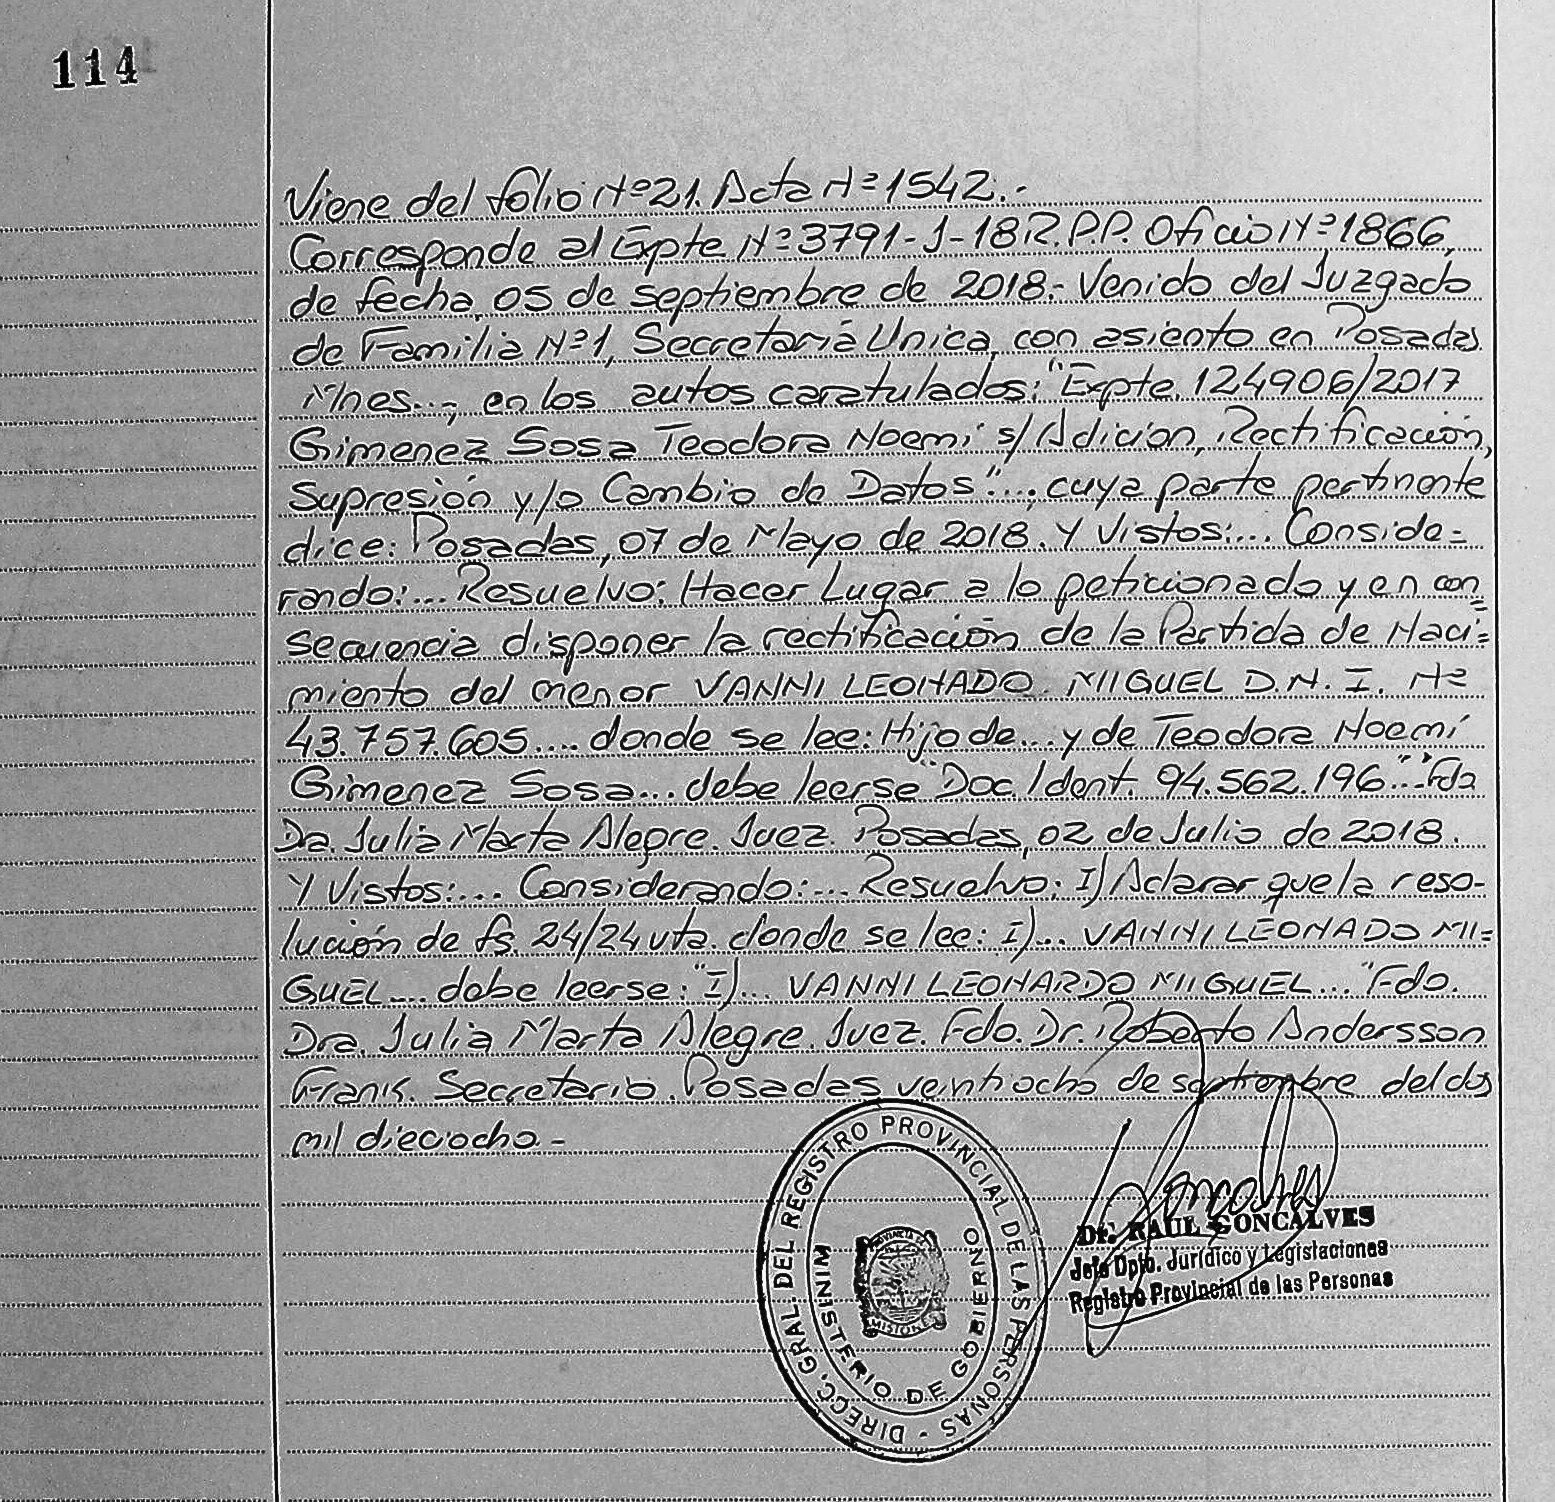 114
Viene del folio Nº 21. Acta Nº 1542.-
Corresponde al Expte Nº 3791-J-18 R.P.P. Oficio Nº 1866,
de fecha, 05 de septiembre de 2018.- Venido del Juzgado
de Familia Nº 1, Secretaría Unica, con asiento en Posadas
Mnes..., en los autos caratulados: "Expte. 124906/2017
Gimenez Sosa Teodora Noemí s/ Adicion, Rectificación,
Supresión y/o Cambio de Datos"..., cuya parte pertinente
dice: Posadas, 07 de Mayo de 2018. Y Vistos:... Conside=
rando:... Resuelvo: Hacer Lugar a lo peticionado y en con=
secuencia disponer la rectificación de la Partida de Naci=
miento del menor VANNI LEONADO MIGUEL D.N.I. Nº
43.757.605.... donde se lee: Hijo de... y de Teodora Noemí
Gimenez Sosa... debe leerse "Doc. Ident. 94.562.196"... "Fdo
Dra. Julia Marta Alegre. Juez. Posadas, 02 de Julio de 2018.
Y Vistos:... Considerando:... Resuelvo: I) Aclarar que la reso-
lución de fs. 24/24 vta. donde se lee: I)... VANNI LEONADO MI=
GUEL.... debe leerse: "I)... VANNI LEONARDO MIGUEL... "Fdo.
Dra. Julia Marta Alegre. Juez. Fdo. Dr. Roberto Andersson
Frank. Secretario. Posadas veintiocho de septiembre del dos
mil dieciocho.-
DIRECC. GRAL. DEL REGISTRO PROVINCIAL DE LAS PERSONAS -
MINISTERIO DE GOBIERNO
PROVINCIA DE
MISIONES
Goncalves
Dr. RAUL GONCALVES
Jefe Dpto. Jurídico y Legislaciones
Registro Provincial de las Personas